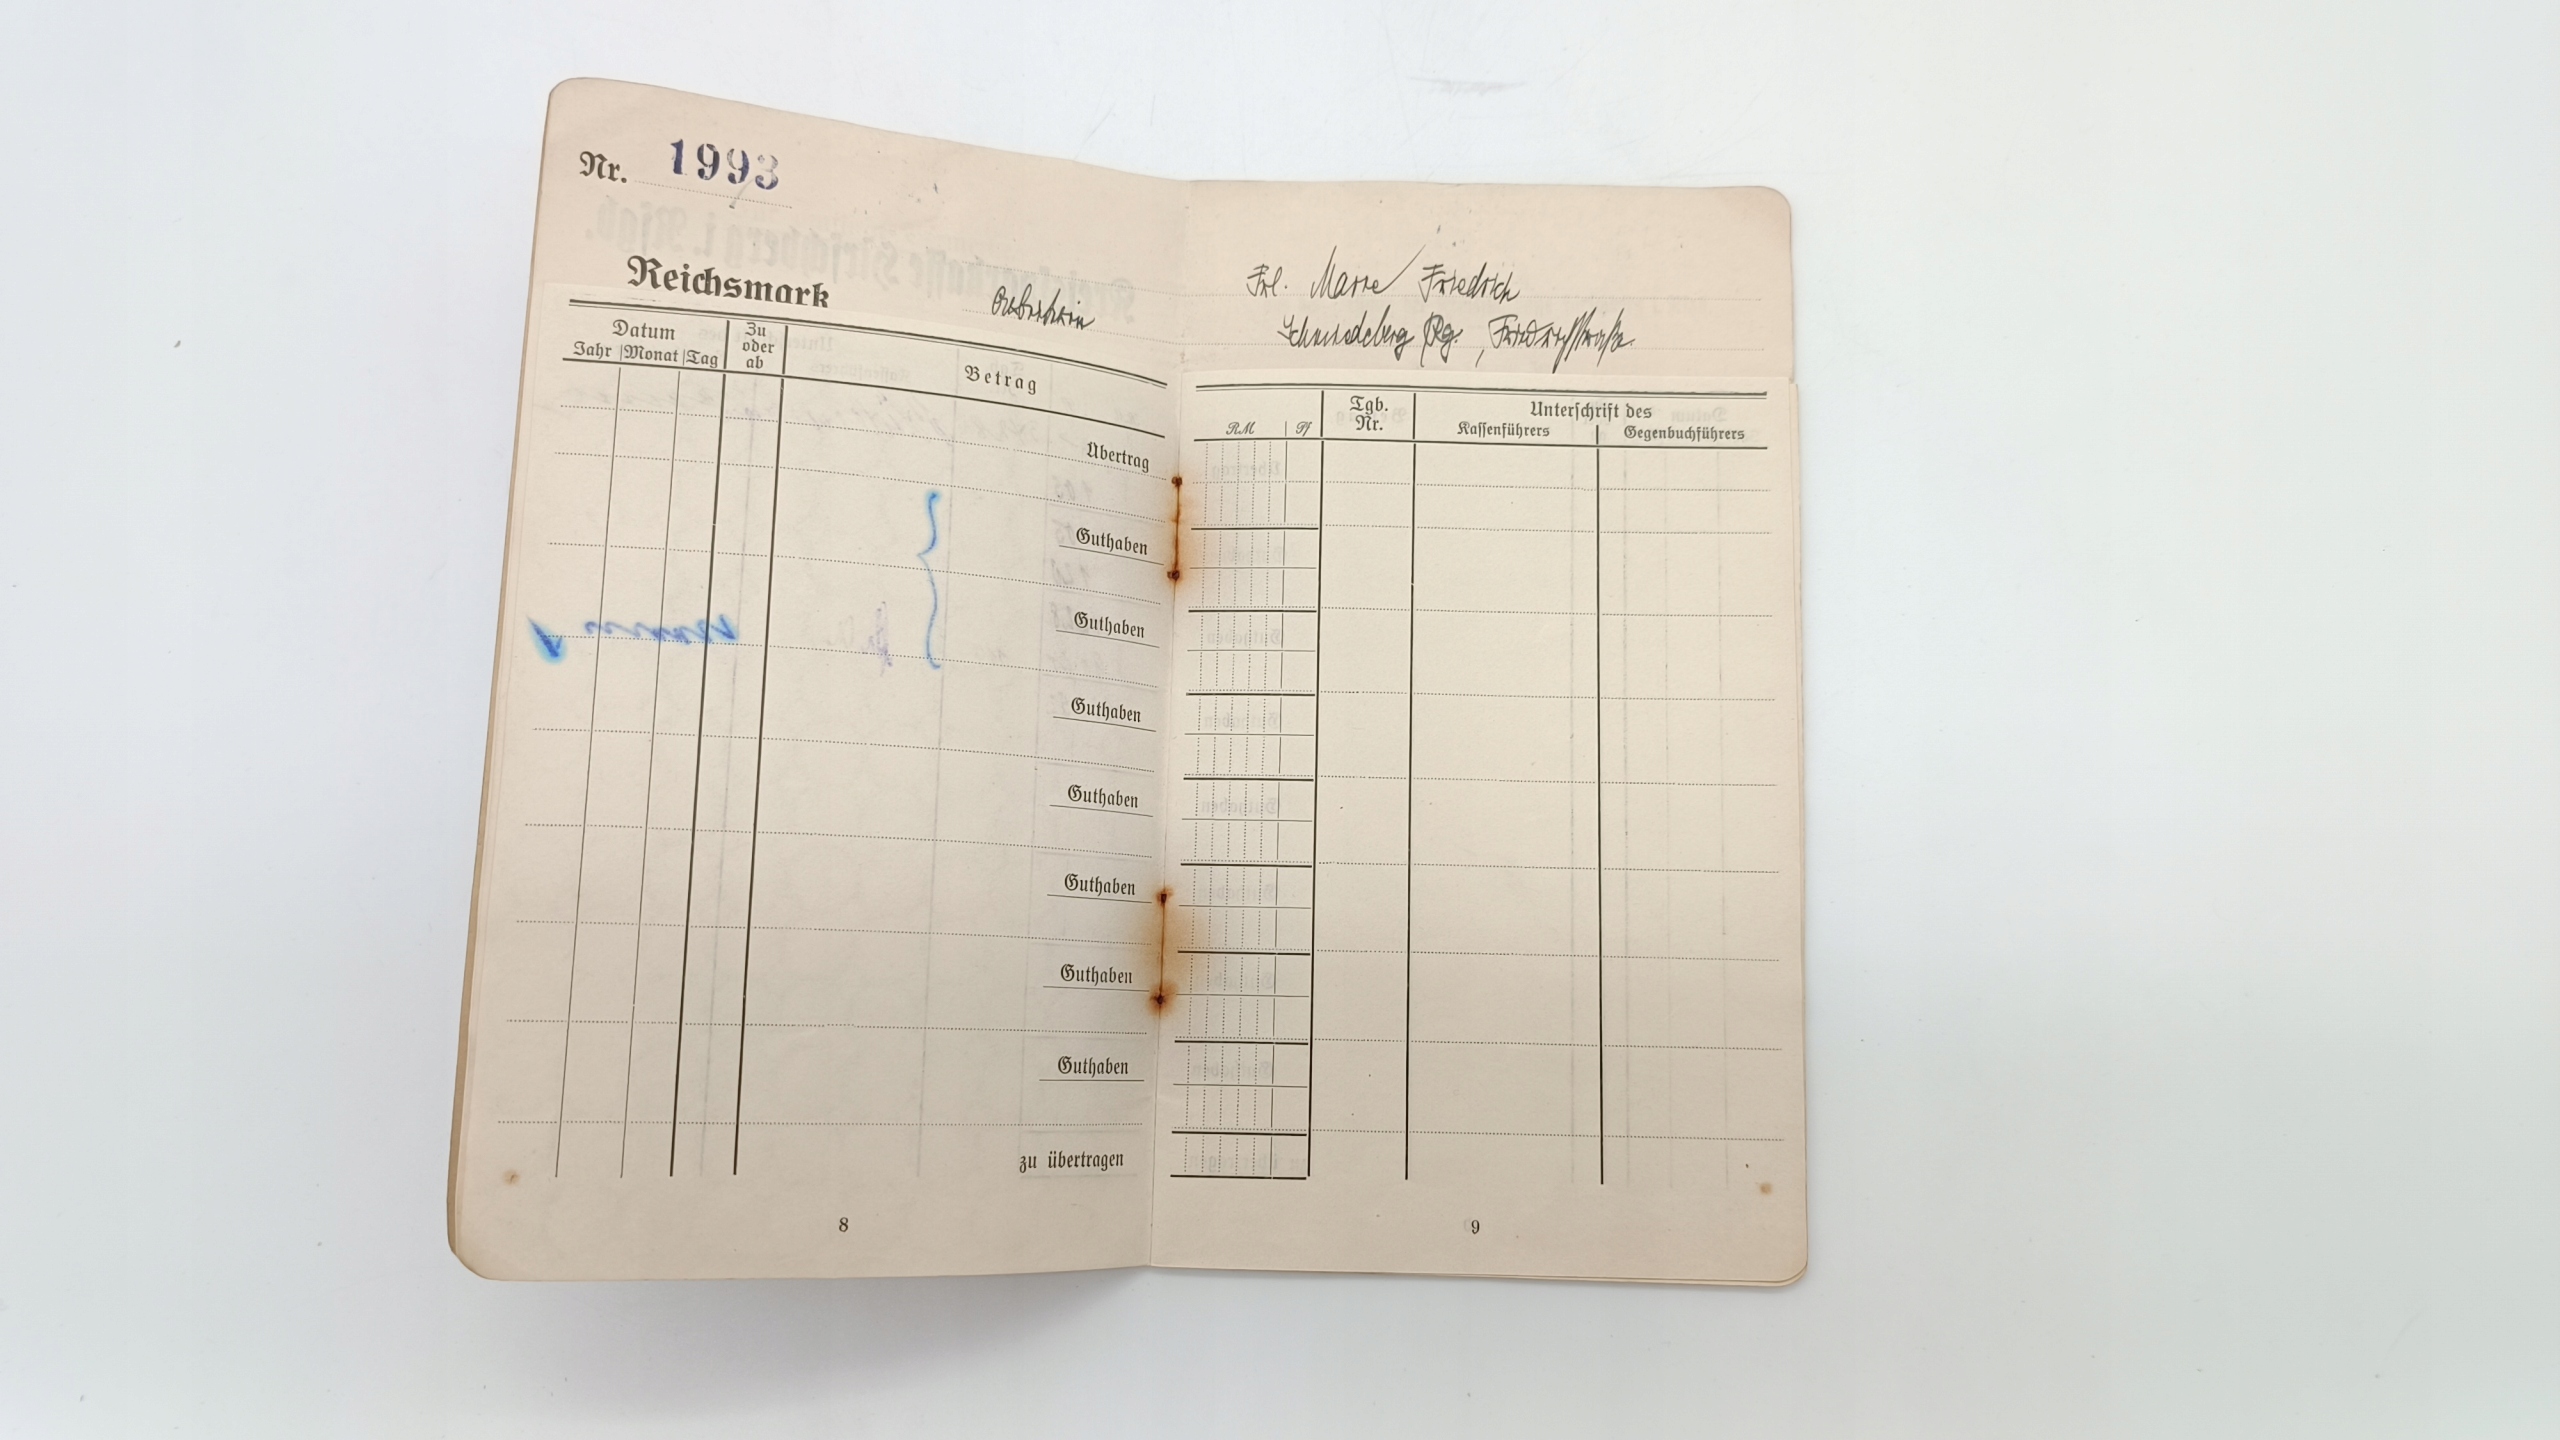 Nr. 1993
Reichsmark
Frl. Marie Friedrich
Schmiedeberg Rg.,
Datum
Jahr Monat Tag
Zu oder ab
Betrag
RM Pf
Tgb. Nr.
Unterschrift des
Kassenführers Gegenbuchführers
Übertrag
Guthaben
Guthaben
Guthaben
Guthaben
Guthaben
Guthaben
Guthaben
zu übertragen
8
9